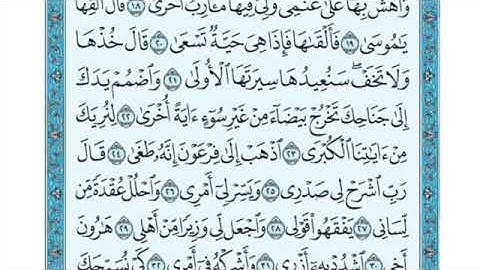 وَأَهُشُّ بِهَا عَلَىٰ غَنَمِى وَلِىَ فِيهَا مَـَٔارِبُ أُخْرَىٰ ١٨ قَالَ أَلْقِهَا
يَـٰمُوسَىٰ ١٩ فَأَلْقَىٰهَا فَإِذَا هِىَ حَيَّةٌ تَسْعَىٰ ٢٠ قَالَ خُذْهَا
وَلَا تَخَفْ سَنُعِيدُهَا سِيرَتَهَا ٱلْأُولَىٰ ٢١ وَٱضْمُمْ يَدَكَ
إِلَىٰ جَنَاحِكَ تَخْرُجْ بَيْضَآءَ مِنْ غَيْرِ سُوٓءٍ ءَايَةً أُخْرَىٰ ٢٢ لِنُرِيَكَ
مِنْ ءَايَـٰتِنَا ٱلْكُبْرَىٰ ٢٣ ٱذْهَبْ إِلَىٰ فِرْعَوْنَ إِنَّهُۥ طَغَىٰ ٢٤ قَالَ
رَبِّ ٱشْرَحْ لِى صَدْرِى ٢٥ وَيَسِّرْ لِىٓ أَمْرِى ٢٦ وَٱحْلُلْ عُقْدَةً مِّن
لِّسَانِى ٢٧ يَفْقَهُوا۟ قَوْلِى ٢٨ وَٱجْعَل لِّى وَزِيرًا مِّنْ أَهْلِى ٢٩ هَـٰرُونَ
أَخِى ٣٠ ٱشْدُدْ بِهِۦٓ أَزْرِى ٣١ وَأَشْرِكْهُ فِىٓ أَمْرِى ٣٢ كَىْ نُسَبِّحَكَ